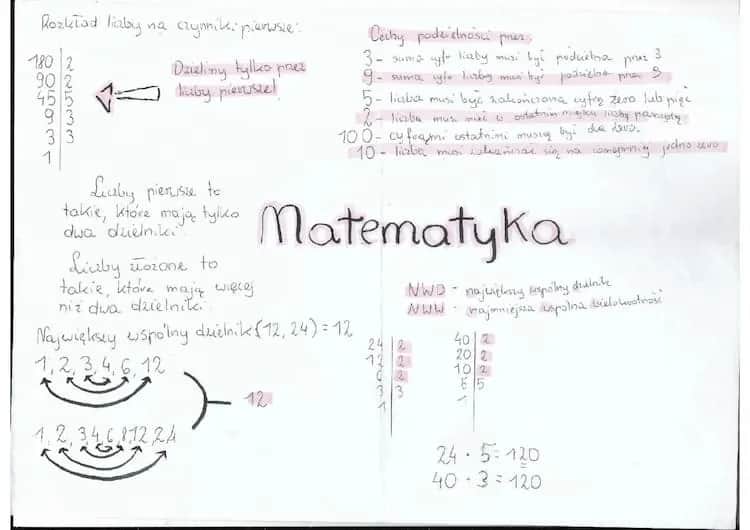 Rozkład liczby na czynniki pierwsze:
180 | 2
90 | 2
45 | 5
9 | 3
3 | 3
1
Dzielimy tylko przez
liczby pierwsze!
Liczby pierwsze to
takie, które mają tylko
dwa dzielniki.
Liczby złożone to
takie, które mają więcej
niż dwa dzielniki.
Największy wspólny dzielnik (12, 24) = 12
1, 2, 3, 4, 6, 12
12
1, 2, 3, 4, 6, 8, 12, 24
Matematyka
Cechy podzielności przez:
3 - suma cyfr liczby musi być podzielna przez 3
9 - suma cyfr liczby musi być podzielna przez 9
5 - liczba musi być zakończona cyfrą zero lub pięć
2 - liczba musi mieć w ostatnim miejscu liczbę parzystą
100 - cyframi ostatnimi muszą być dwa zera.
10 - liczba musi zakańczać się na jedno zero
NWD - największy wspólny dzielnik
NWW - najmniejsza wspólna wielokrotność
24 | 2
12 | 2
6 | 2
3 | 3
1
40 | 2
20 | 2
10 | 2
5 | 5
1
24 · 5 = 120
40 · 3 = 120